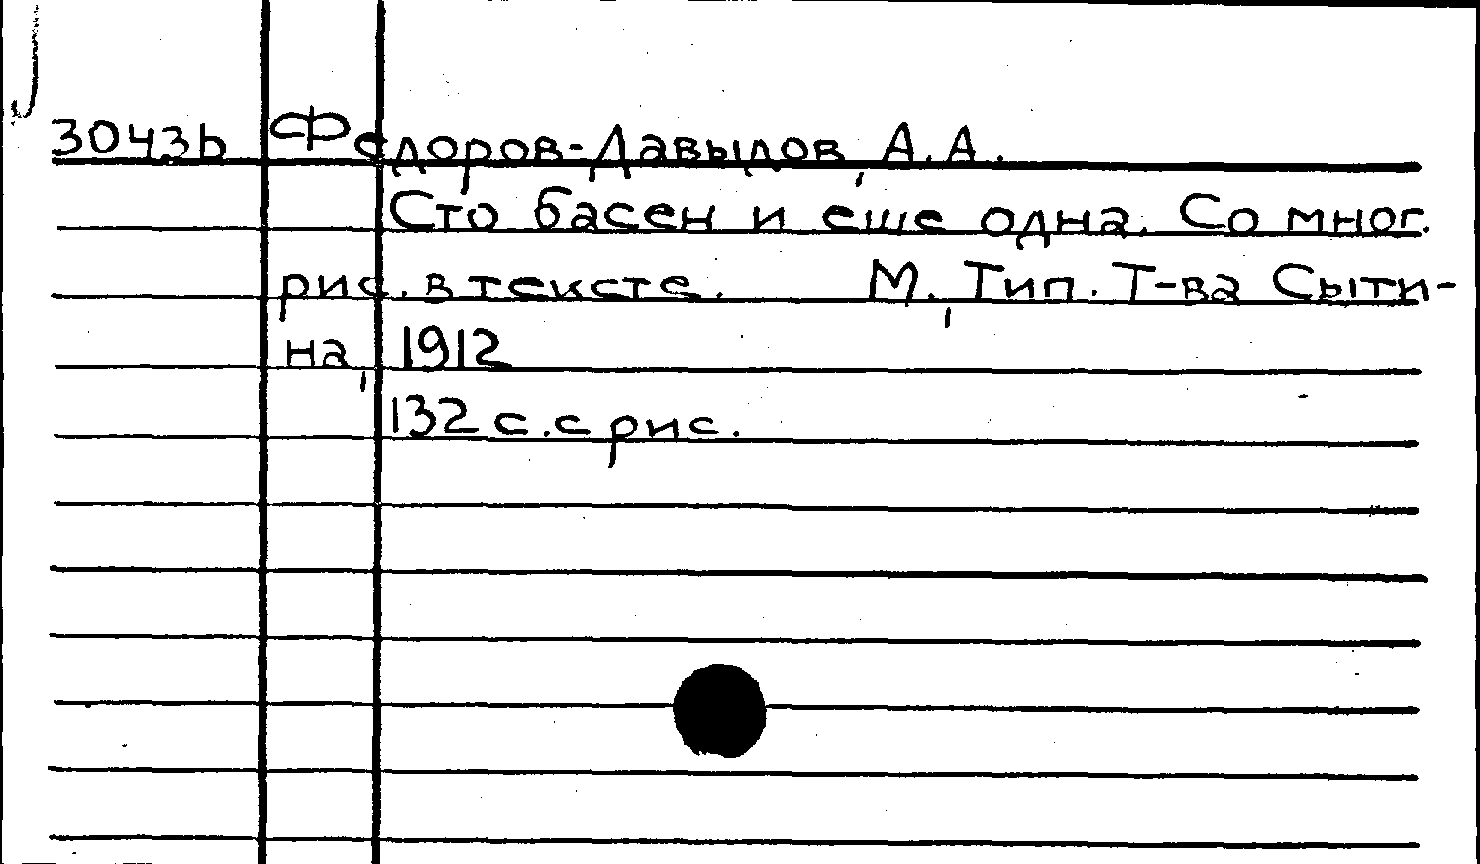 3043b Федоров-Давыдов, А.А.
Сто басен и еще одна. Со мног.
рис. в тексте. М., Тип. Т-ва Сыти-
на, 1912
132 с. с рис.